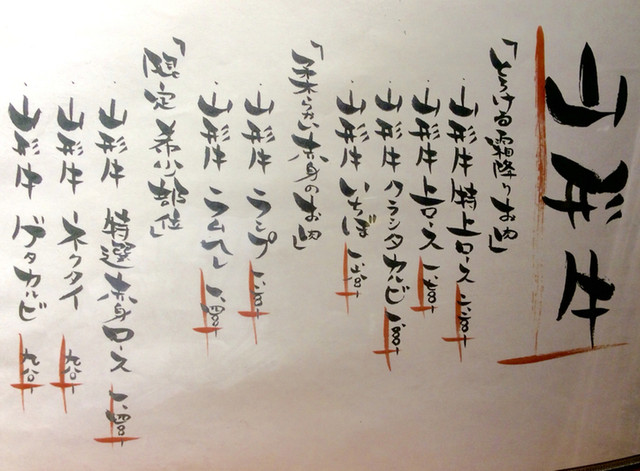 山形牛
「とろける霜降りお肉」
・山形牛 特上ロース
・山形牛 上ロース
・山形牛 クラシタカルビ
・山形牛 いちぼ
「柔らかい赤身のお肉」
・山形牛 ランプ
・山形牛 ラムシン
「限定 希少部位」
・山形牛 特選赤身ロース
・山形牛 ネクタイ 九八〇
・山形牛 ゲタカルビ 九八〇